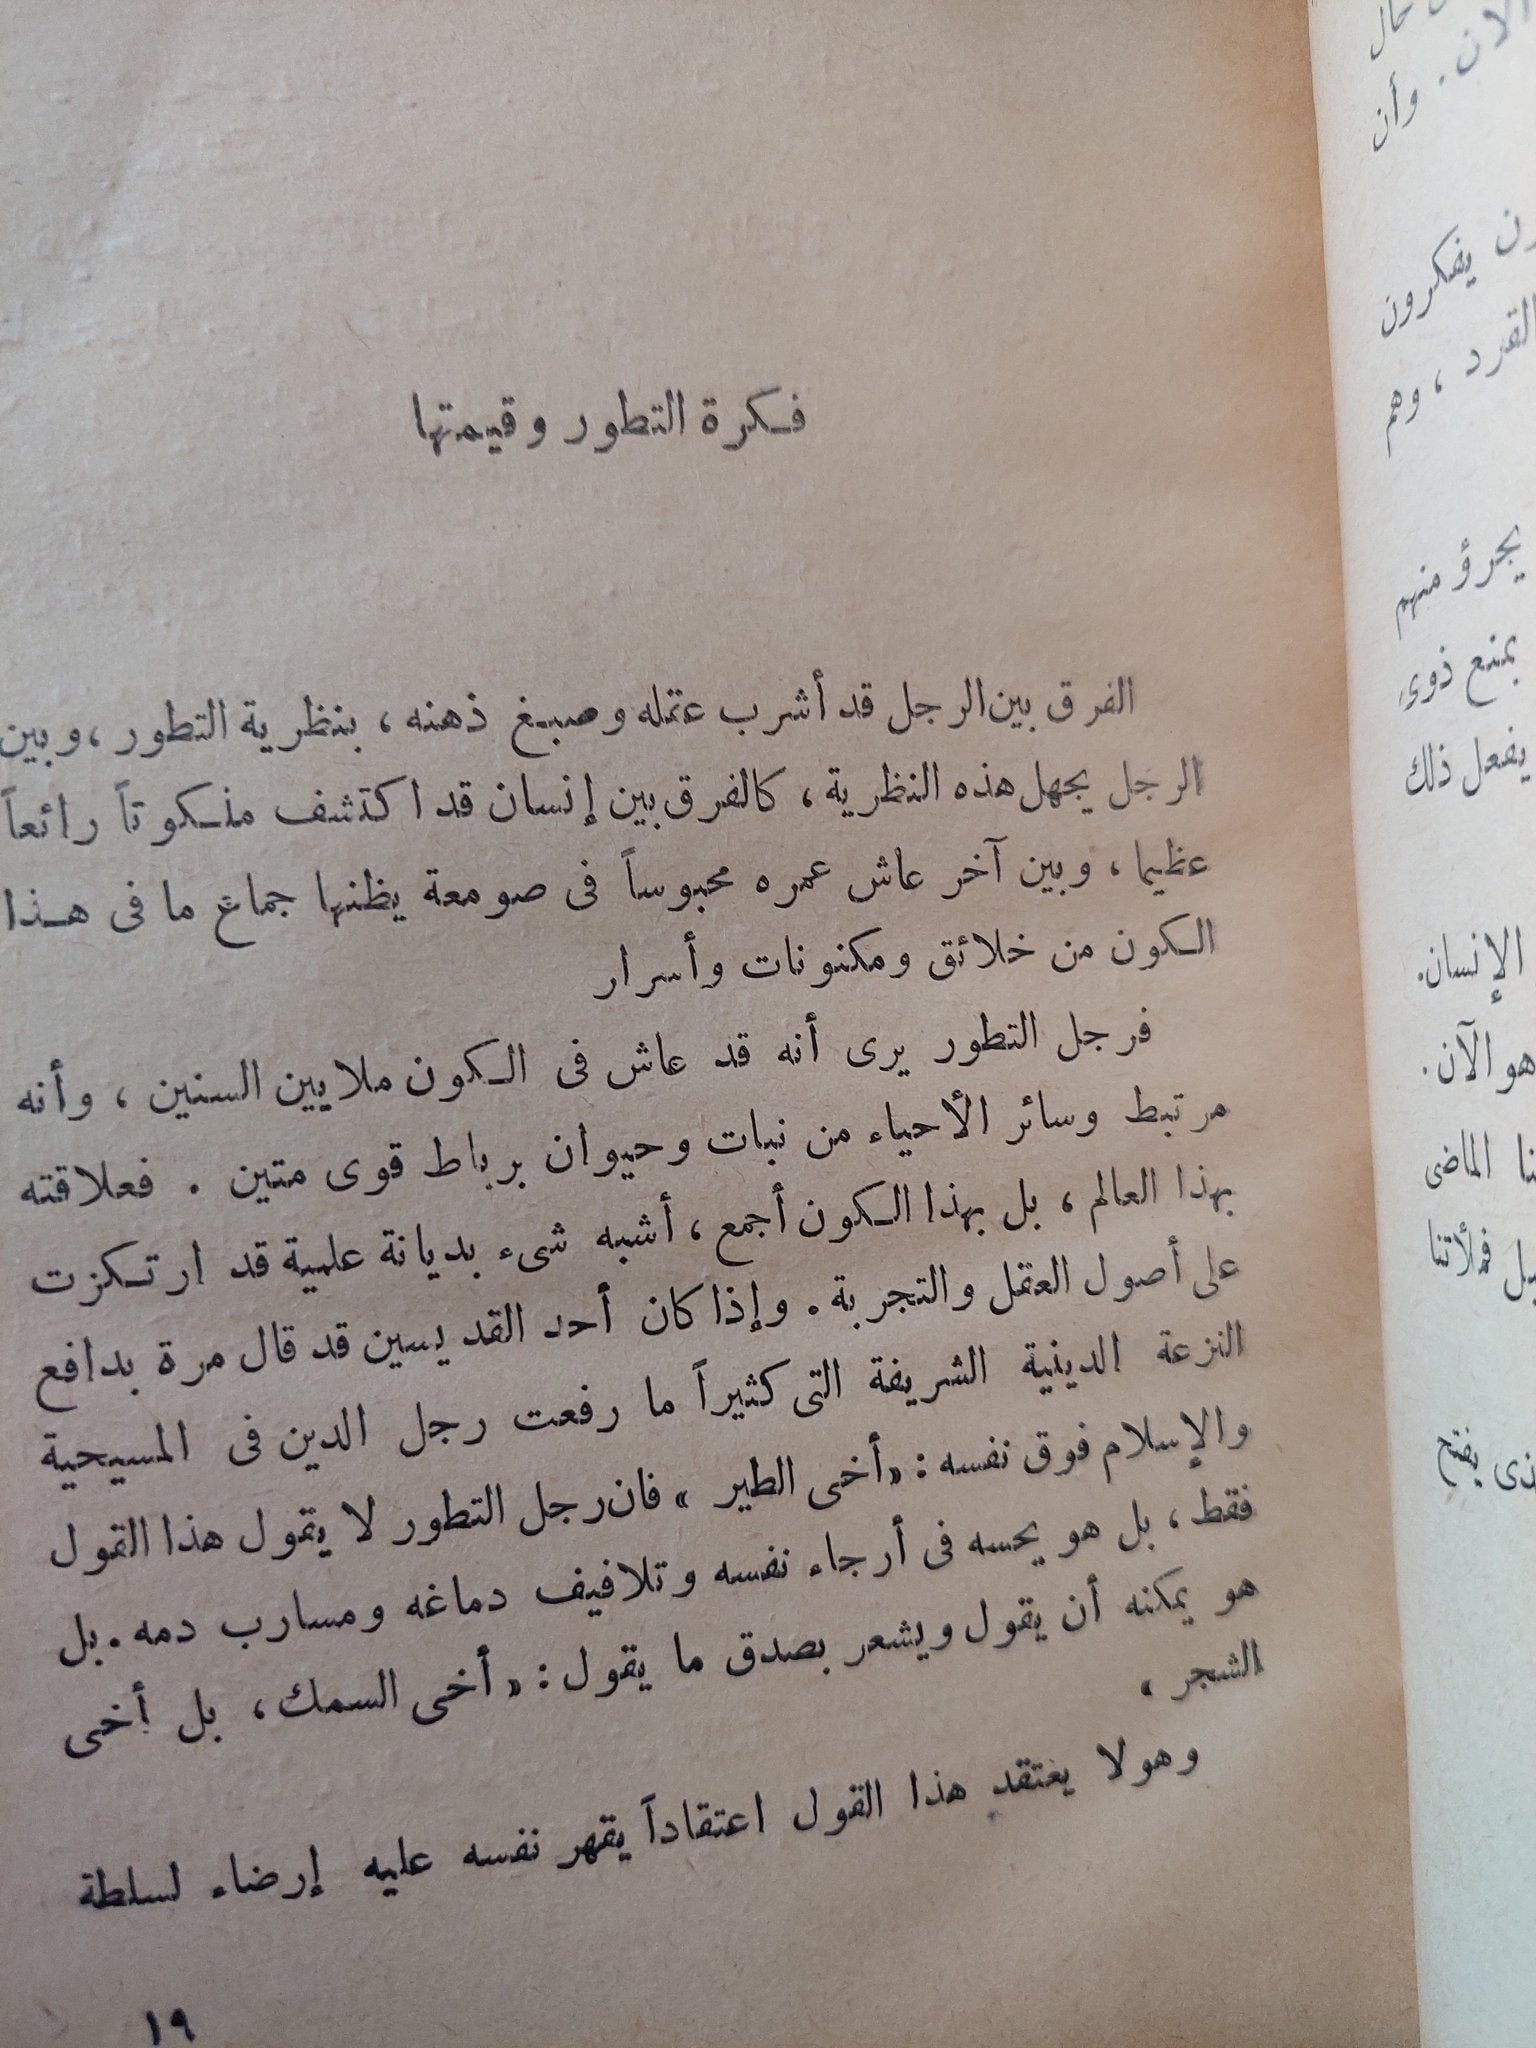 فكرة التطور وقيمتها
الفرق بين الرجل قد أشرب عقله وصبغ ذهنه ، بنظرية التطور ، وبين
الرجل يجهل هذه النظرية ، كالفرق بين إنسان قد اكتشف ملكوتاً رائعاً
عظيما ، وبين آخر عاش عمره محبوساً فى صومعة يظنها جماع ما فى هذا
الكون من خلائق ومكنونات وأسرار
فرجل التطور يرى أنه قد عاش فى الكون ملايين السنين ، وأنه
مرتبط وسائر الأحياء من نبات وحيوان برباط قوى متين . فعلاقته
بهذا العالم ، بل بهذا الكون أجمع ، أشبه شىء بديانة علمية قد ارتكزت
على أصول العقل والتجربة . وإذا كان أحد القديسين قد قال مرة بدافع
النزعة الدينية الشريفة التى كثيراً ما رفعت رجل الدين فى المسيحية
والإسلام فوق نفسه : « أخى الطير » فان رجل التطور لا يقول هذا القول
فقط ، بل هو يحسه فى أرجاء نفسه وتلافيف دماغه ومسارب دمه . بل
هو يمكنه أن يقول ويشعر بصدق ما يقول : « أخى السمك ، بل أخى
الشجر »
وهو لا يعتقد هذا القول اعتقاداً يقهر نفسه عليه إرضاء لسلطة
١٩
حال
الآن . وأن
يفكرون
القرد ، وهم
يجرؤ منهم
بمنع ذوى
يفعل ذلك
الإنسان .
هو الآن .
الماضى
فملأتنا
يفتح